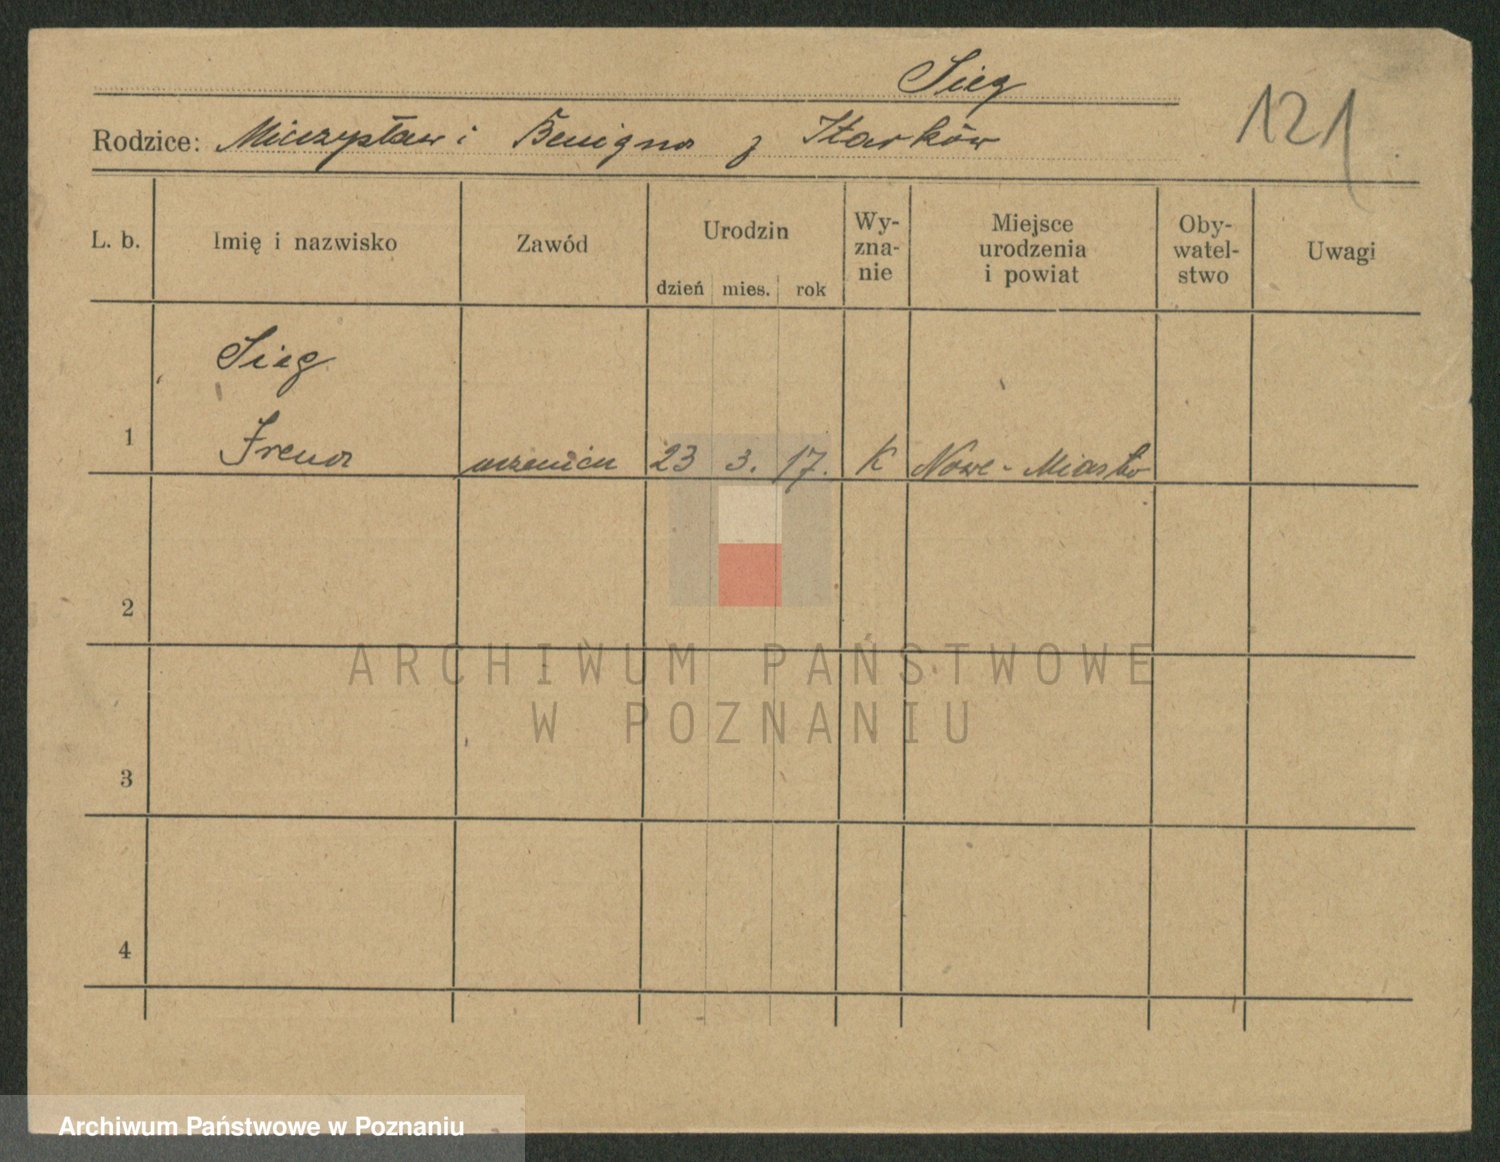 Sieg
121
Rodzice: Mieczysław i Benigna z
L. b.
Imię i nazwisko
Zawód
Urodzin
dzień mies. rok
Wy-
zna-
nie
Miejsce
urodzenia
i powiat
Oby-
watel-
stwo
Uwagi
Sieg
1 Irena 23 3. 17. K Nowe-Miasto
2
ARCHIWUM PAŃSTWOWE
W POZNANIU
3
4
Archiwum Państwowe w Poznaniu